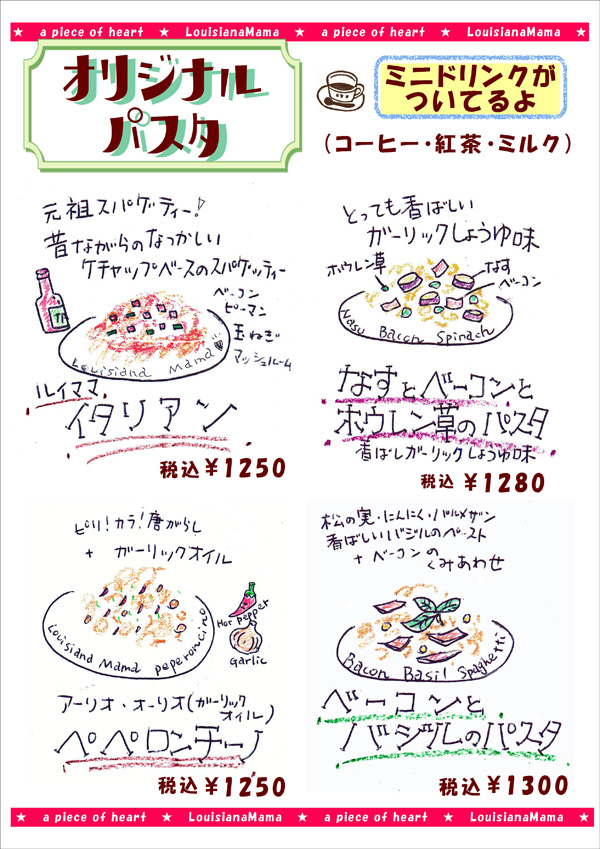 ★ a piece of heart ★ LouisianaMama ★ a piece of heart ★ LouisianaMama ★
オリジナル
パスタ
ミニドリンクが
ついてるよ
(コーヒー・紅茶・ミルク)
元祖スパゲッティー!
昔ながらのなつかしい
ケチャップベースのスパゲッティー
ベーコン
ピーマン
玉ねぎ
マッシュルーム
Louisiana Mama
ルイママ
イタリアン
税込¥1250
とっても香ばしい
ガーリックしょうゆ味
ホウレン草
なす
ベーコン
Nasu Bacon Spinach
なすとベーコンと
ホウレン草のパスタ
香ばしガーリックしょうゆ味
税込¥1280
ピリ!カラ!唐がらし
+ ガーリックオイル
Hot Pepper
Garlic
Louisiana Mama peperoncino
アーリオ・オーリオ(ガーリック
オイル)
ペペロンチーノ
税込¥1250
松の実・にんにく・パルメザン
香ばしいバジルのペースト
+ ベーコンの
くみあわせ
Bacon Basil Spaghetti
ベーコンと
バジルのパスタ
税込¥1300
★ a piece of heart ★ LouisianaMama ★ a piece of heart ★ LouisianaMama ★